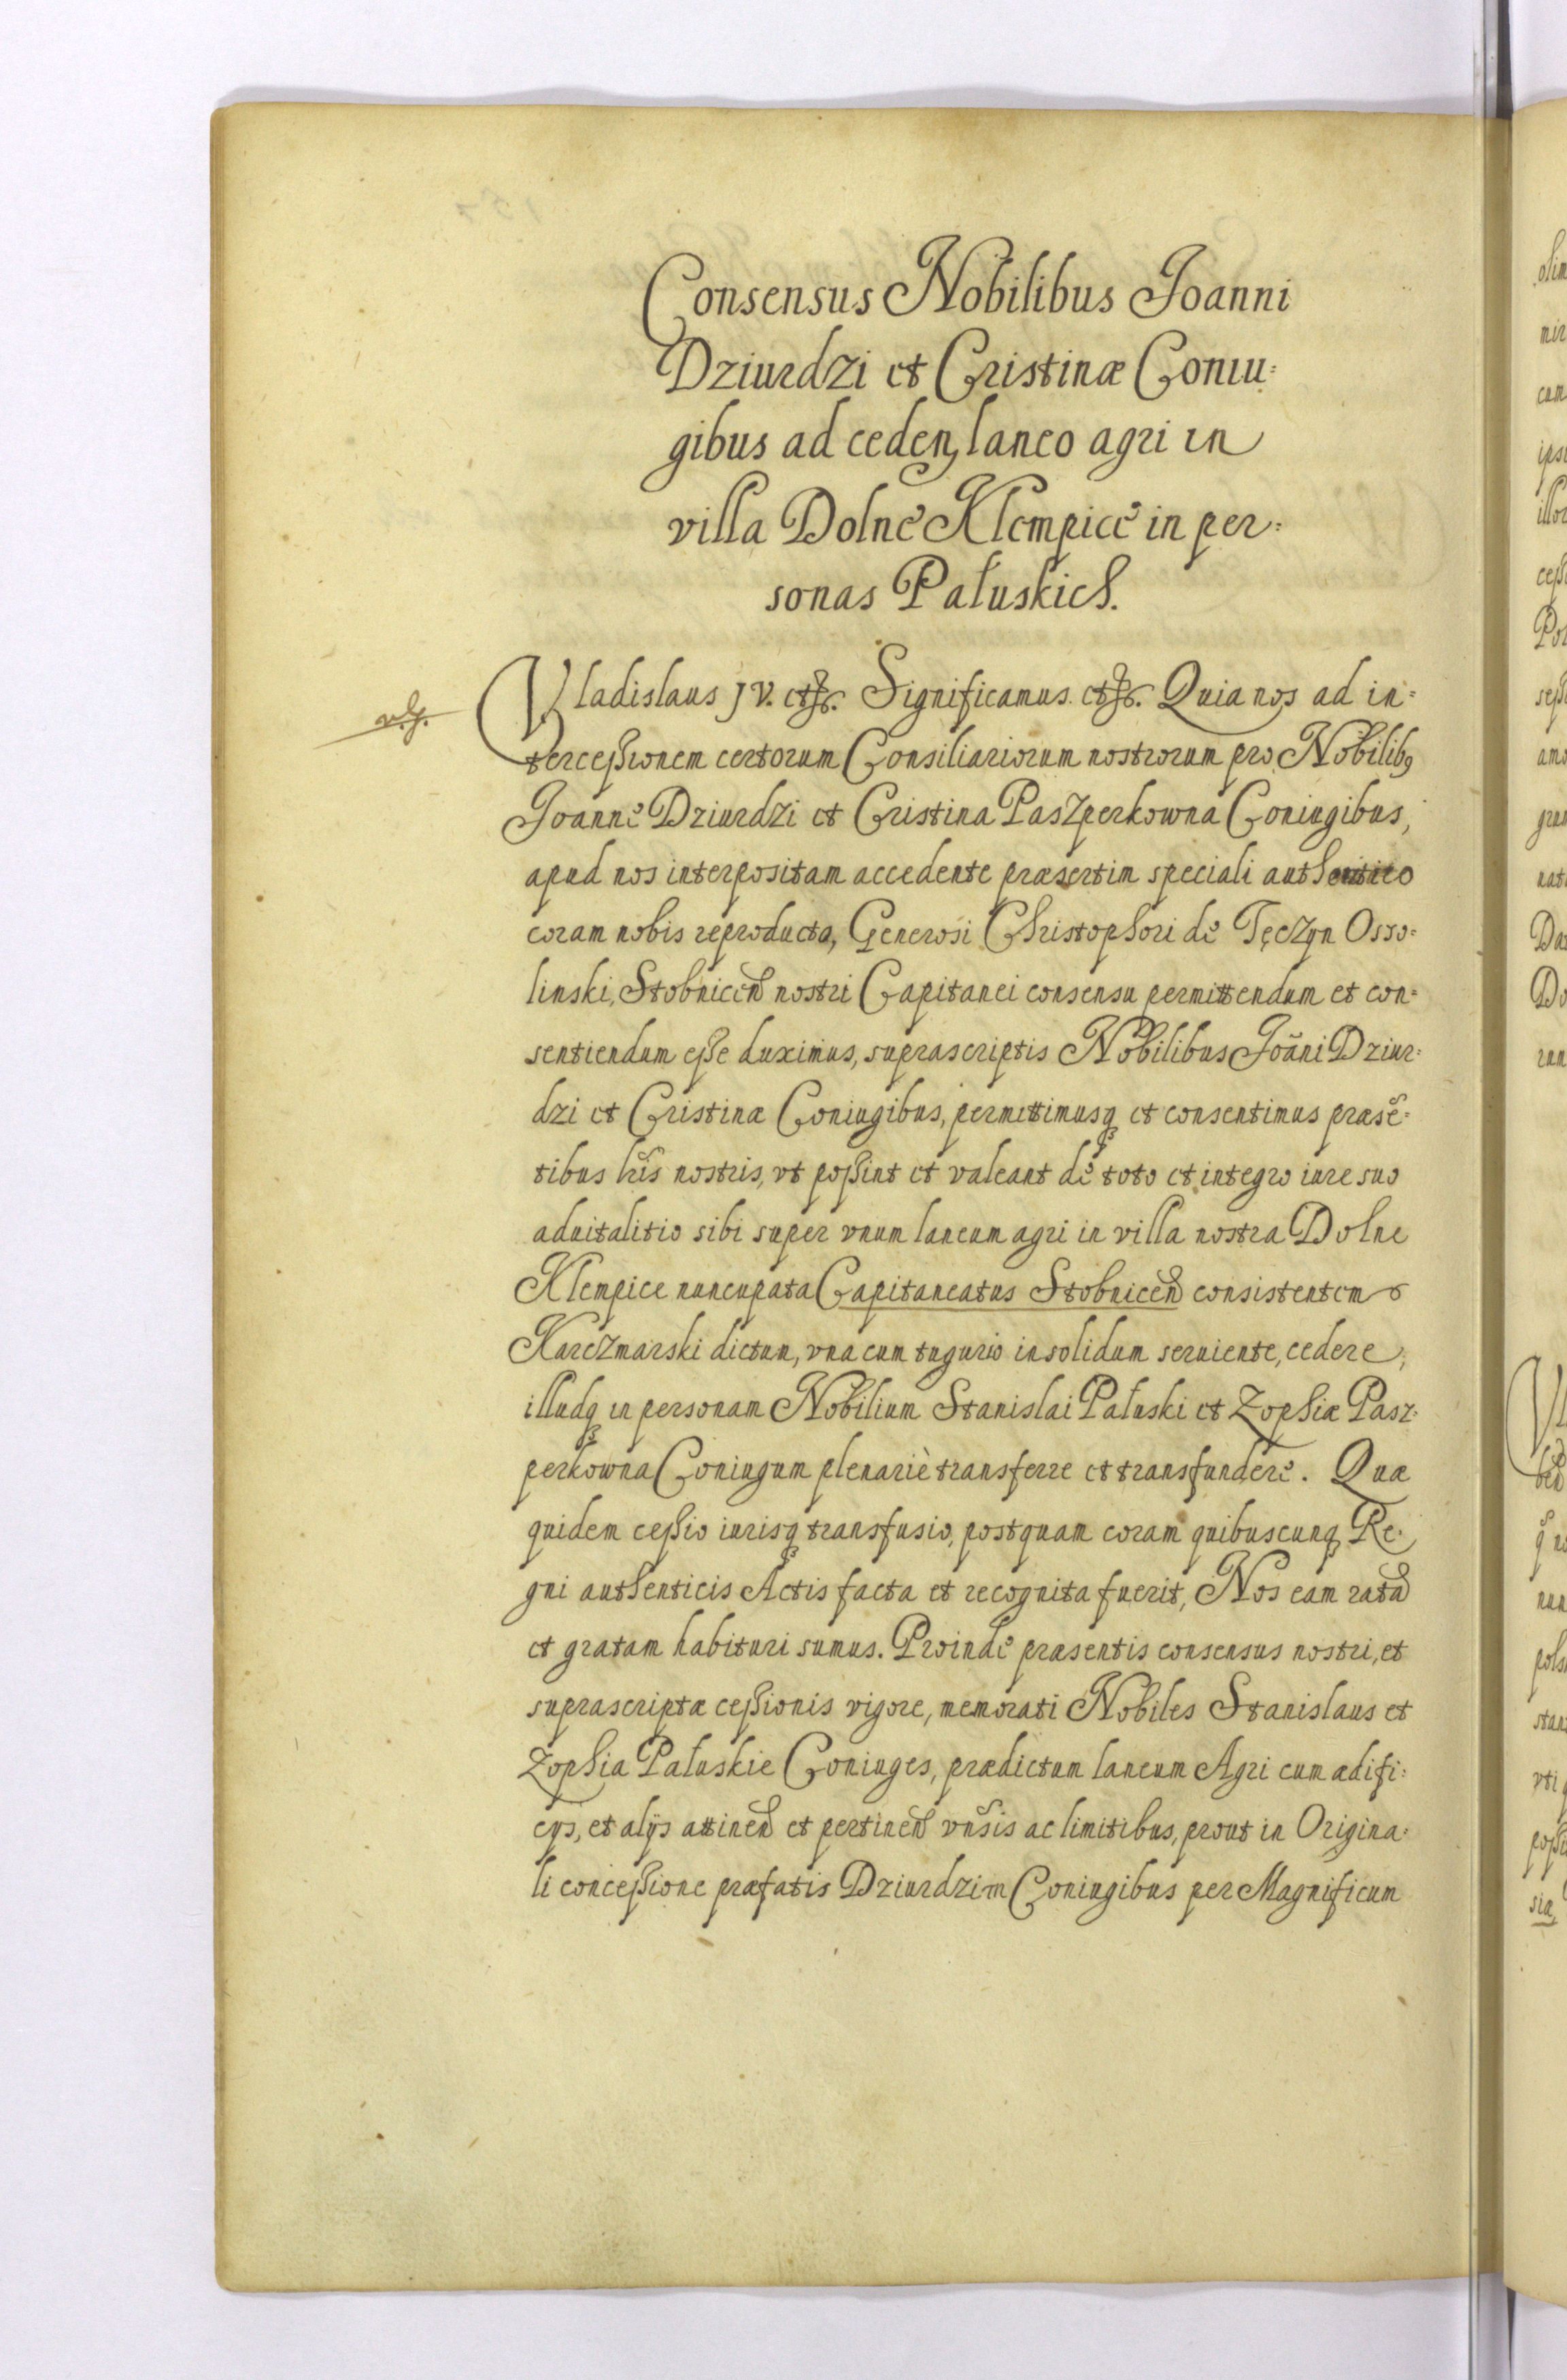 Consensus Nobilibus Joanni
Dziurdzi et Cristinæ Coniu=
gibus ad ceden laneo agri in
villa Dolne Klempice in per=
sonas Pałuskich.
Vladislaus JV. etc. Significamus etc. Quia nos ad in=
terceßionem certorum Consiliariorum nostrorum pro Nobilibꝰ
Joanne Dziurdzi et Cristina Paszperkowna Coniugibus,
apud nos interpositam accedente præsertim speciali authentico
coram nobis reproducto, Generosi Christophori de Tęczyn Osso=
linski, Stobniceñ nostri Capitanei consensu permittendum et con=
sentiendum eße duximus, suprascriptis Nobilibus Joãni Dziur=
dzi et Cristinæ Coniugibus, permittimusq et consentimus præsẽ=
tibus lr̃is nostris, vt poßint et valeant de toto et integro iure suo
aduitalitio sibi super vnum laneum agri in villa nostra Dolne
Klempice nuncupata Capitaneatus Stobniceñ consistentem
Karczmarski dictum, vna cum tugurio insolidum seruiente, cedere,
illudq in personam Nobilium Stanislai Pałuski et Zophiæ Pasz=
perkowna Coniugum plenariè transferre et transfundere. Quæ
quidem ceßio iurisq transfusio, postquam coram quibuscunq Re=
gni authenticis Actis facta et recognita fuerit, Nos eam ratã
et gratam habituri sumus. Proinde præsentis consensus nostri, et
suprascriptæ ceßionis vigore, memorati Nobiles Stanislaus et
Zophia Pałuskie Coniuges, prædictum laneum Agri cum ædifi=
cijs, et alijs attineñ et pertineñ vñsis ac limitibus, prout in Origina=
li conceßione præfatis Dziurdzim Coniugibus per Magnificum